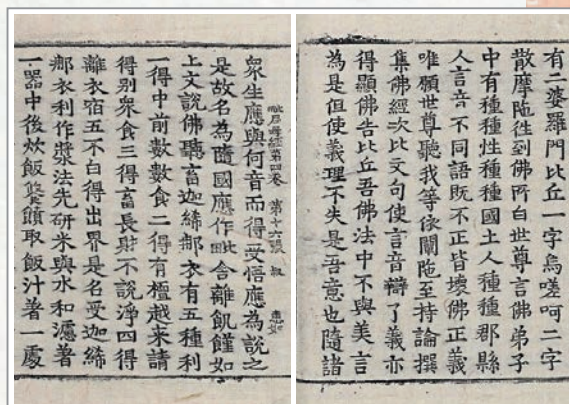 有二婆羅門比丘一字烏嗟呵二字
散摩陁徃到佛所白世尊言佛弟子
中有種種性種種國土人種種郡縣
人言音不同語既不正皆壞佛正義
唯願世尊聽我等依闡陁至持論撰
集佛經次比文句使言音辯了義亦
得顯佛告比丘吾佛法中不與美言
為是但使義理不失是吾意也隨諸
衆生應與何音而得受悟應為說之
毗尼母経第四卷 第十六張 叔 惠如
是故名為隨國應作毗舍離飢饉如
上文說佛聽畜迦絺郍衣有五種利
一得中前數數食二得有檀越来請
得別衆食三得畜長財不說淨四得
離衣宿五不白得出界是名受迦絺
郍衣利作漿法先研米與水和漉著
一器中後炊飯饙取飯汁著一處